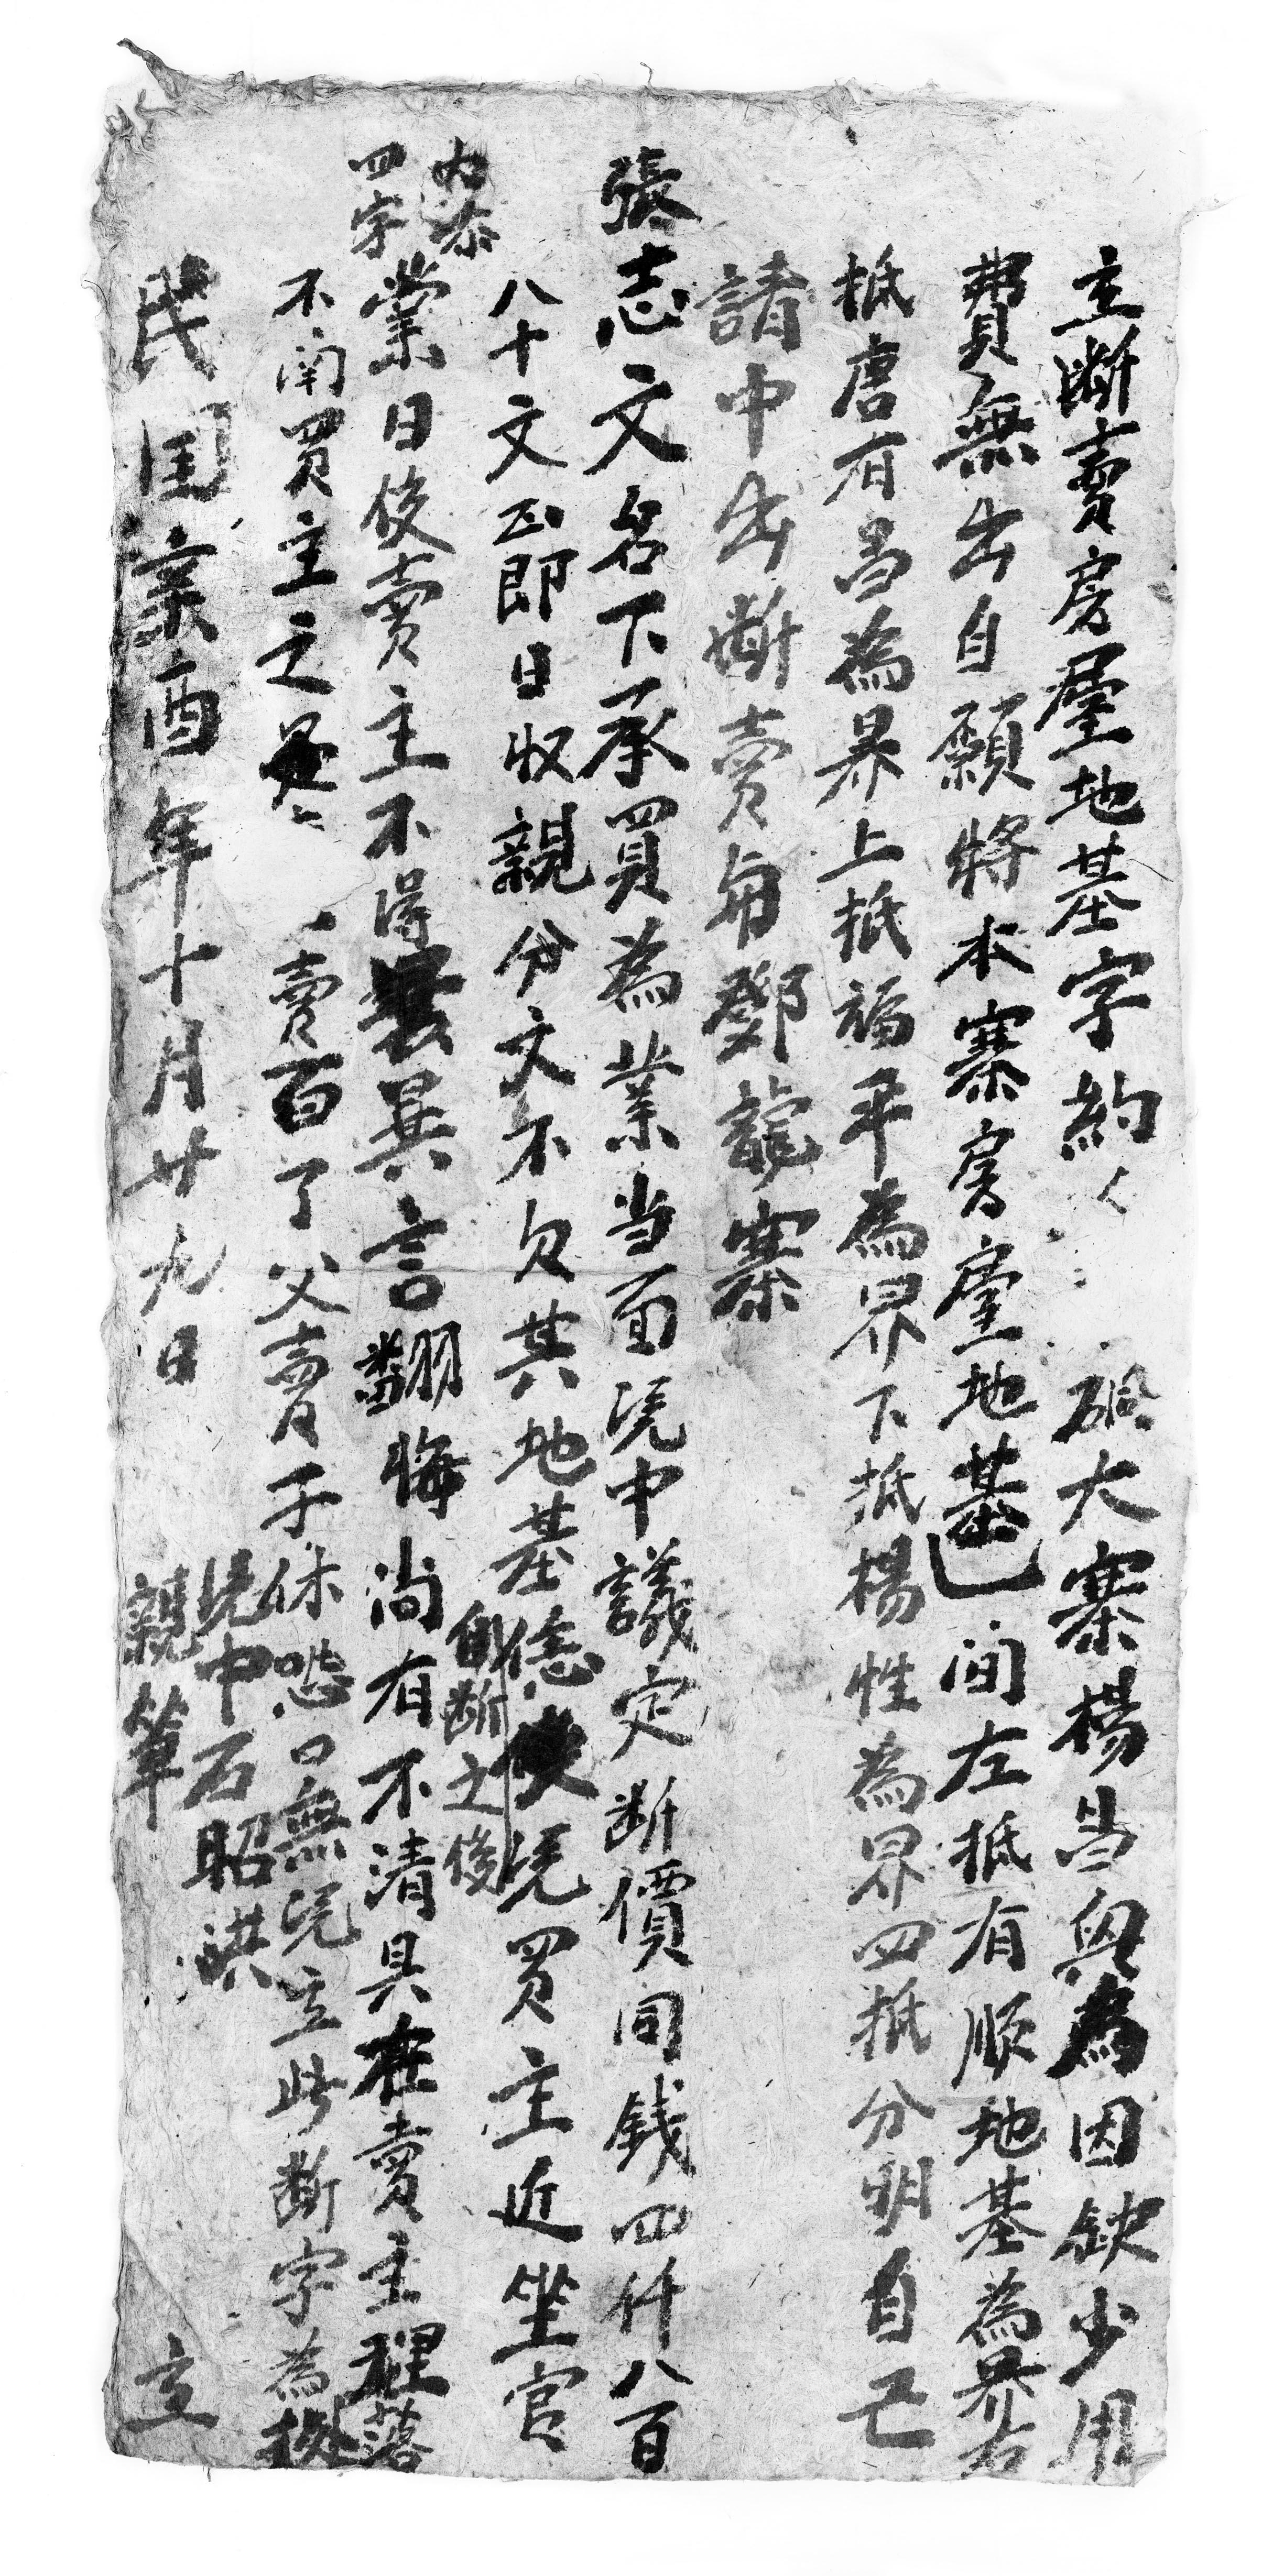 立斷賣房屋地基字約人 硐大寨楊昌與為因缺少用
費無出自願將本寨房屋地基乙間左抵有順地基為界右
抵唐有昌為界上抵福平為界下抵楊性為界四抵分明自己
請中出斷賣與鄧龍寨
張志文名下承買為業当面凭中議定断價同錢四仟八百
八十文正即日收親分文不欠其地基凭買主近坐官
自断之後
內添四字
業日後賣主不得異言翻悔尚有不清具在賣主理落
不甫買主之事 賣百了父賣子休恐口無凭立此斷字為據
凭中石昭洪
親筆
民国辛酉年十月廿九日 立